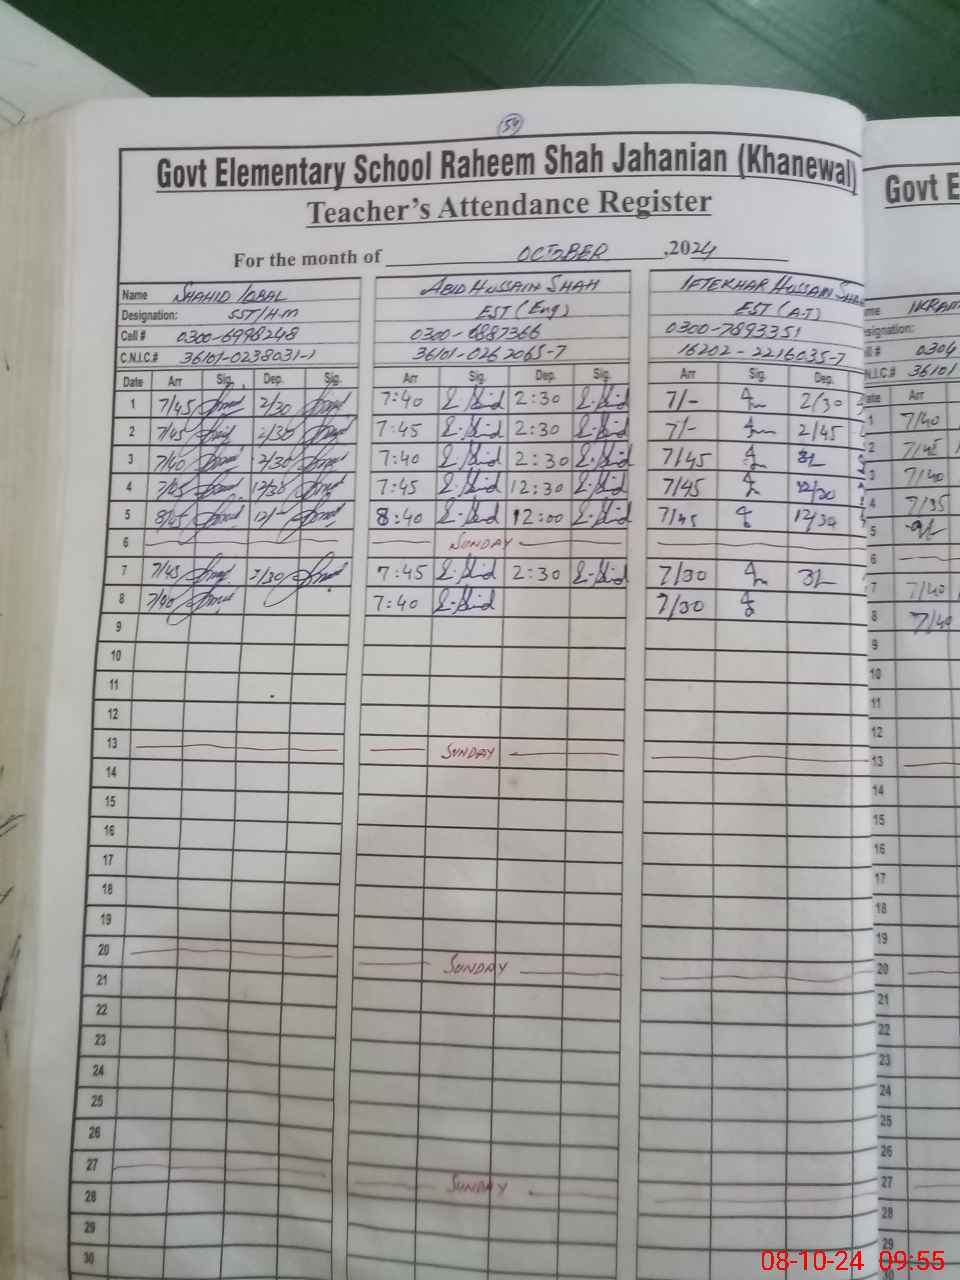 54
Govt Elementary School Raheem Shah Jahanian (Khanewal)
Teacher's Attendance Register
For the month of OCTOBER ,2024
Name SHAHID IQBAL ABID HUSSAIN SHAH IFTEKHAR HUSSAIN
Designation: SST/H.M EST (Eng) EST (A.T)
Cell # 0300-6998248 0300-6887366 0300-7893351
C.N.I.C.# 36101-0238031-1 36101-0262065-7 16202-2216035-7
Date Arr Sig. Dep. Sig. Arr Sig. Dep. Sig. Arr Sig. Dep.
1 7/45 2/30 7:40 2:30 7/- 2/30
2 7/45 2/30 7:45 2:30 7/- 2/45
3 7/40 2/30 7:40 2:30 7/45
4 7/45 12/30 7:45 12:30 7/45 12/30
5 8/45 12/- 8:40 12:00 7/45 12/30
6 SUNDAY
7 7/45 2/30 7:45 2:30 7/30
8 7/40 7:40 7/30
9
10
11
12
13 SUNDAY
14
15
16
17
18
19
20 SUNDAY
21
22
23
24
25
26
27 SUNDAY
28
29
30
Govt E
IKRAM
signation:
0304
N.I.C.# 36101
Arr
1 7/40
2 7/45
3 7/40
4 7/35
5
6
7 7/40
8 7/40
9
10
11
12
13
14
15
16
17
18
19
20
21
22
23
24
25
26
27
28
29
08-10-24 09:55